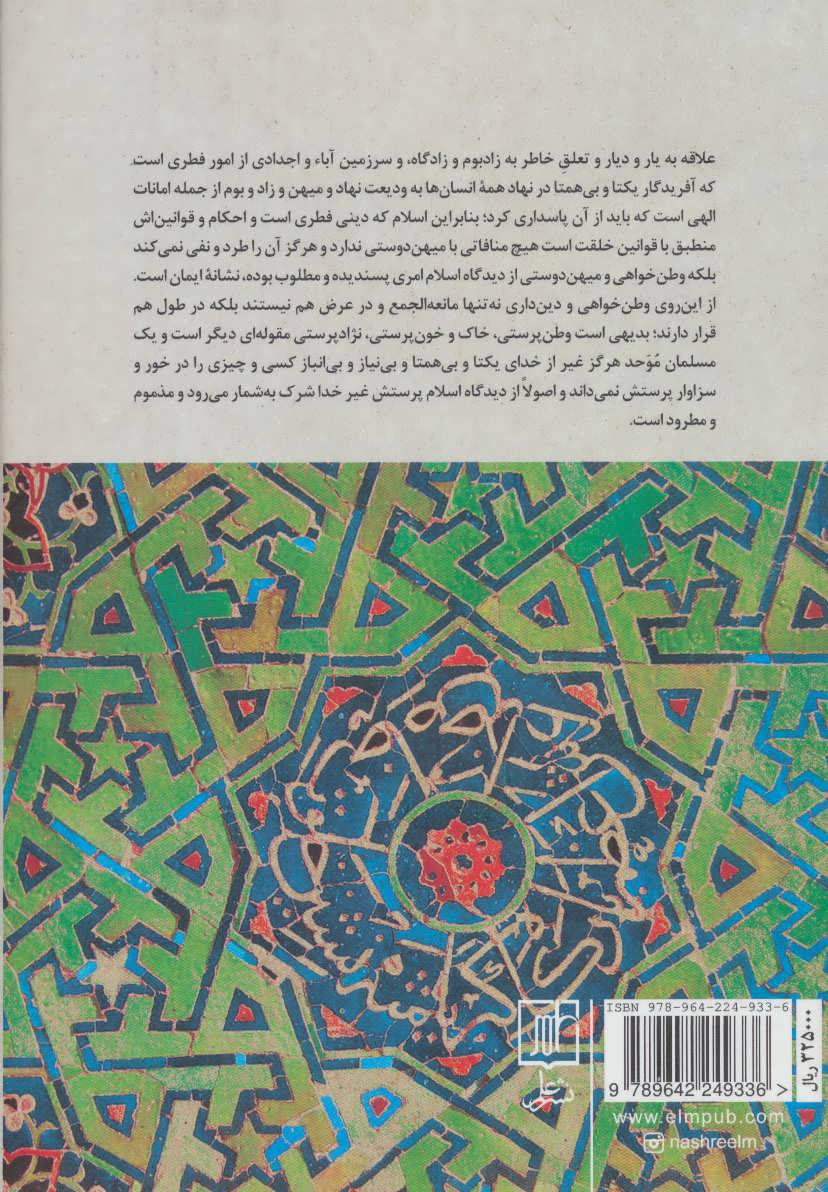 علاقه به یار و دیار و تعلقِ خاطر به زادبوم و زادگاه، و سرزمین آباء و اجدادی از امور فطری است
که آفریدگار یکتا و بی‌همتا در نهاد همهٔ انسان‌ها به ودیعت نهاد و میهن و زاد و بوم از جمله امانات
الهی است که باید از آن پاسداری کرد؛ بنابراین اسلام که دینی فطری است و احکام و قوانین‌اش
منطبق با قوانین خلقت است هیچ منافاتی با میهن‌دوستی ندارد و هرگز آن را طرد و نفی نمی‌کند
بلکه وطن‌خواهی و میهن‌دوستی از دیدگاه اسلام امری پسندیده و مطلوب بوده، نشانهٔ ایمان است.
از این‌روی وطن‌خواهی و دین‌داری نه‌تنها مانعه‌الجمع و در عرض هم نیستند بلکه در طول هم
قرار دارند؛ بدیهی است وطن‌پرستی، خاک و خون‌پرستی، نژادپرستی مقوله‌ای دیگر است و یک
مسلمان مُوَحد هرگز غیر از خدای یکتا و بی‌همتا و بی‌نیاز و بی‌انباز کسی و چیزی را در خور و
سزاوار پرستش نمی‌داند و اصولاً از دیدگاه اسلام پرستش غیر خدا شرک به‌شمار می‌رود و مذموم
و مطرود است.
ISBN 978-964-224-933-6
9 789642 249336 >
۳۲۵۰۰۰ ریال
نشر علم
www.elmpub.com
nashreelm